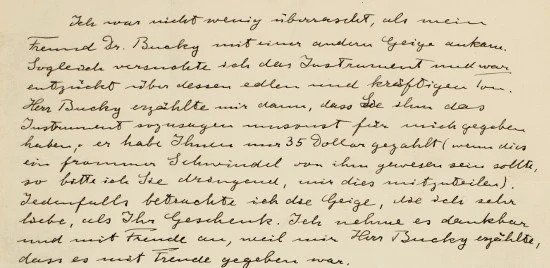 Ich war nicht wenig überrascht, als mein
Freund Dr. Bucky mit einer andern Geige ankam.
Sogleich versuchte ich das Instrument und war
entzückt über dessen edlen und kräftigen Ton.
Herr Bucky erzählte mir dann, dass Sie ihm das
Instrument sozusagen umsonst für mich gegeben
haben; er habe Ihnen nur 35 Dollar gezahlt (wenn dies
ein frommer Schwindel von ihm gewesen sein sollte,
so bitte ich Sie dringend, mir dies mitzuteilen).
Jedenfalls betrachte ich die Geige, die ich sehr
liebe, als Ihr Geschenk. Ich nehme es dankbar
und mit Freude an, weil mir Herr Bucky erzählte,
dass es mit Freude gegeben war.